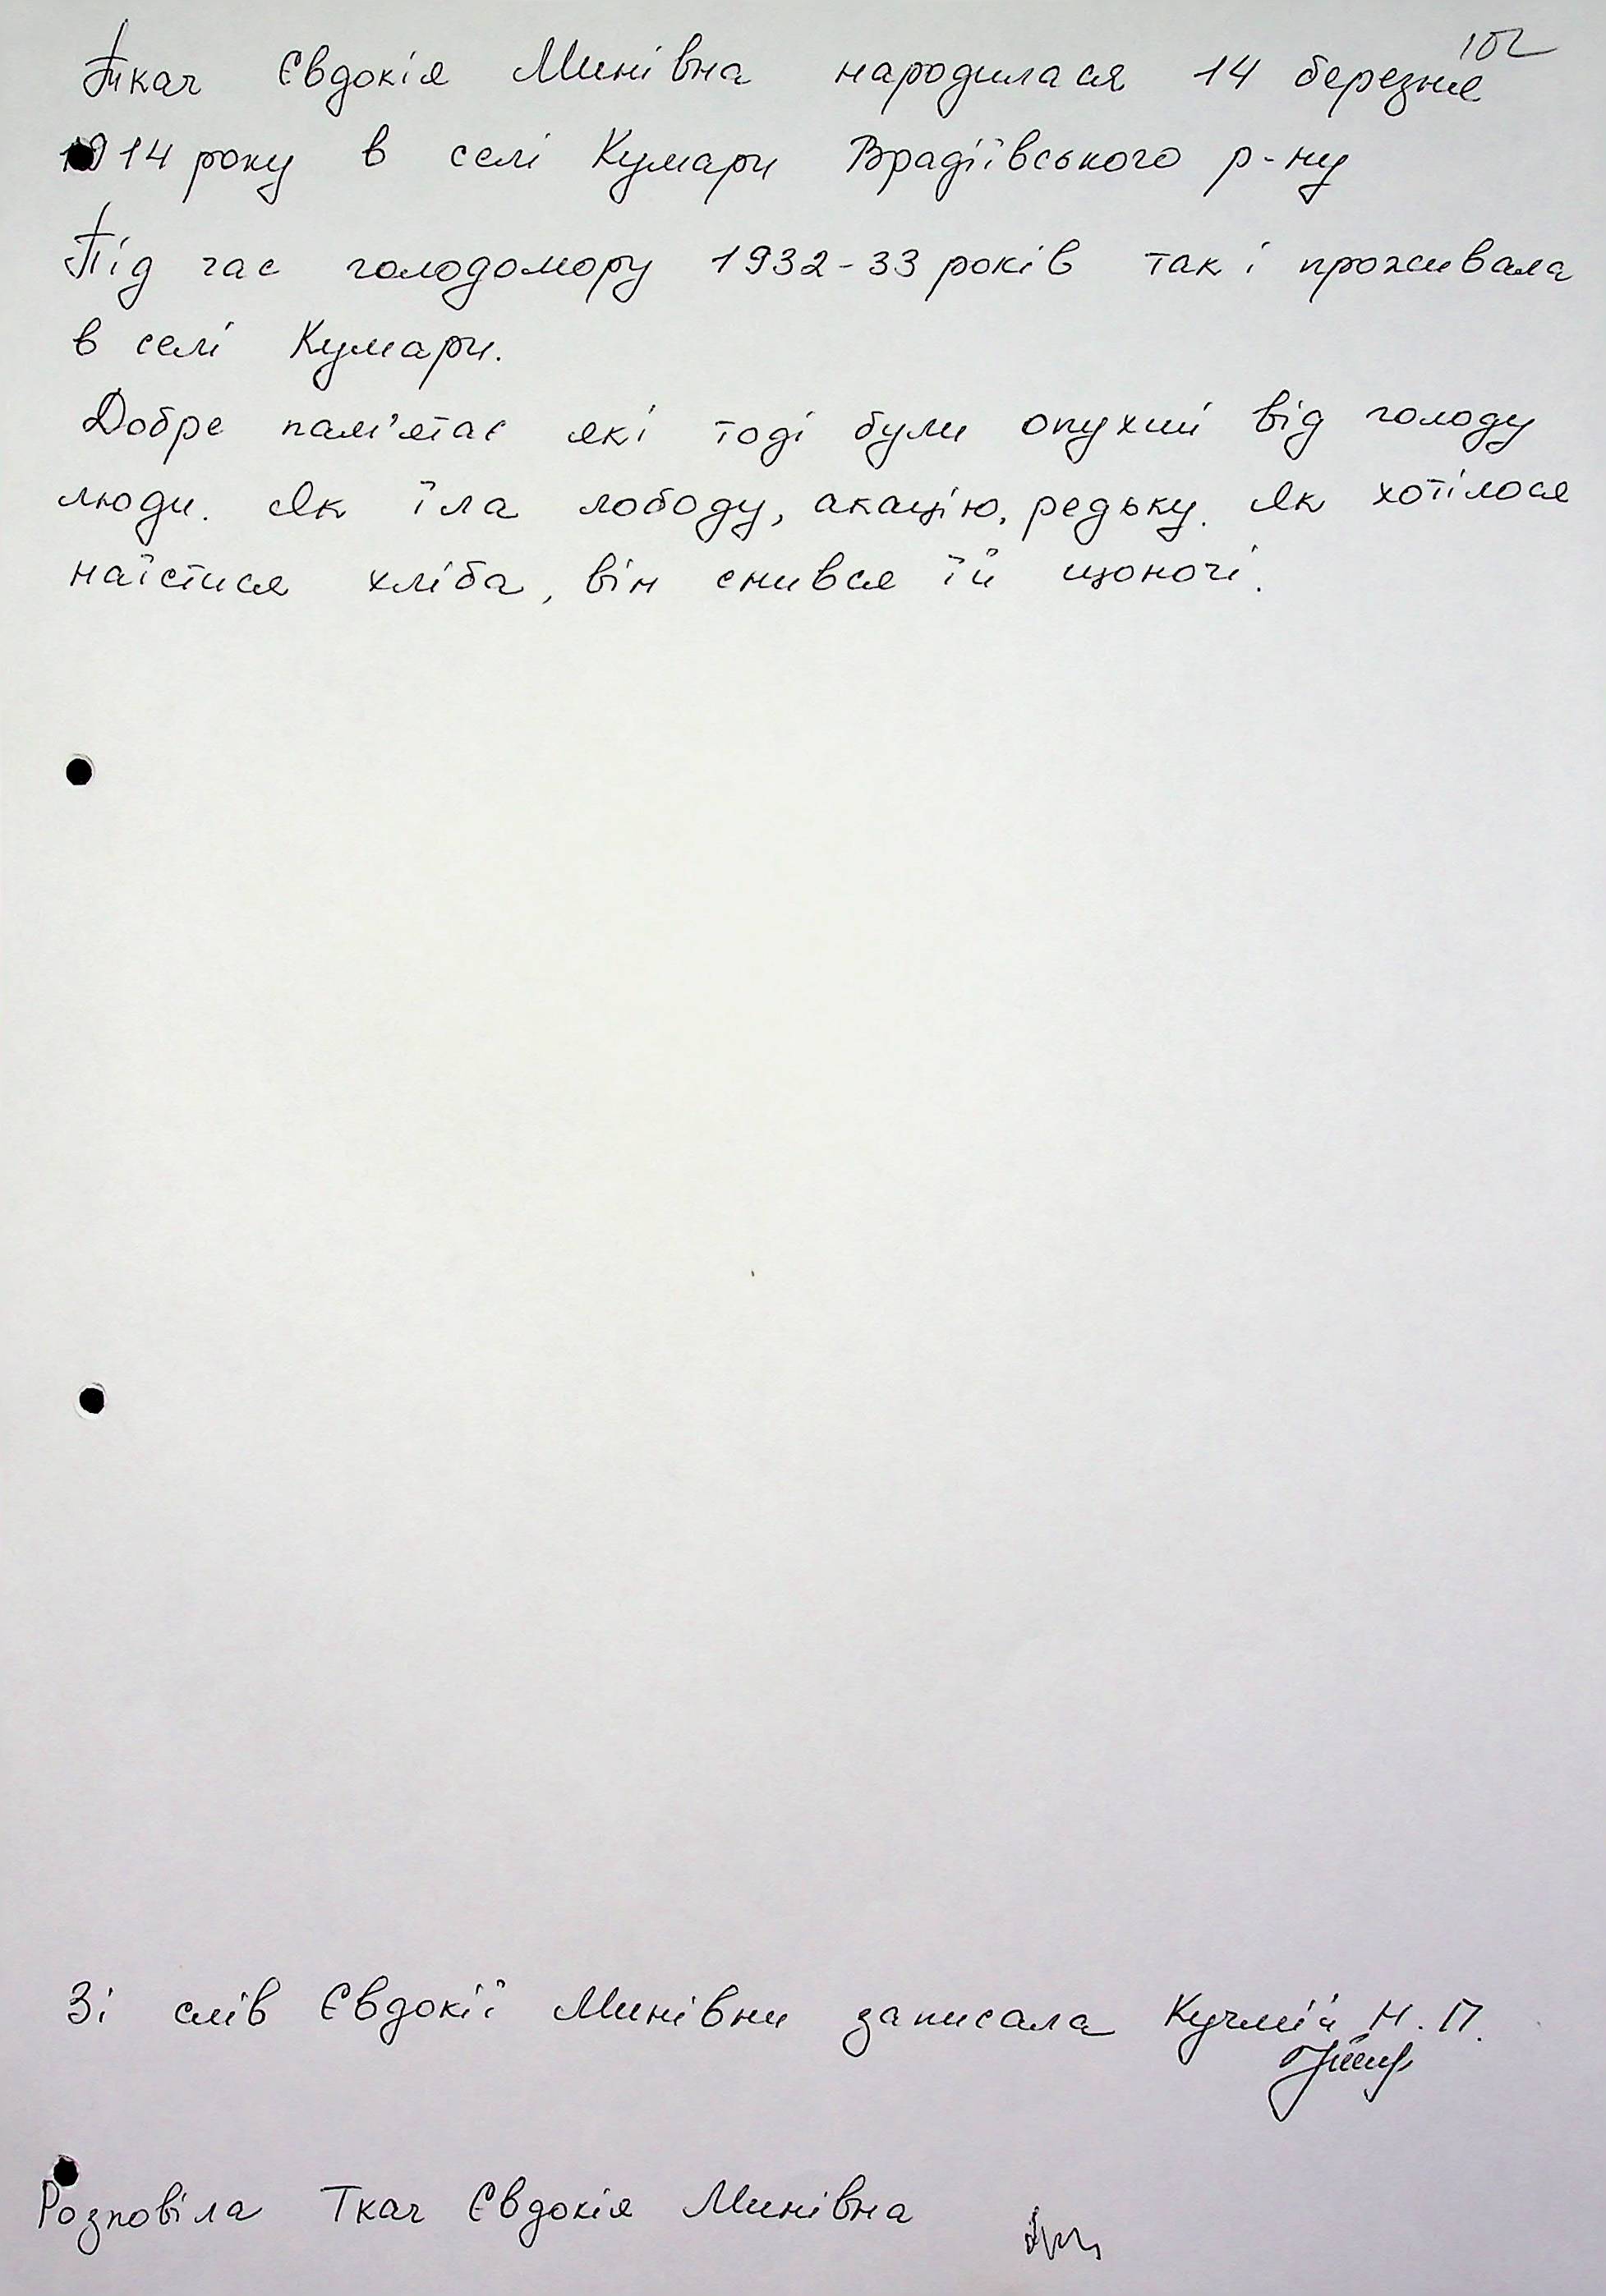 102
Ткач Євдокія Минівна народилася 14 березня
1914 року в селі Кумари Врадіївського р-ну
Під час голодомору 1932-33 років так і проживала
в селі Кумари.
Добре пам'ятає які тоді були опухши від голоду
люди. Як їла лободу, акацію, редьку. Як хотілося
наїстися хліба, він снився їй щоночі.
Зі слів Євдокії Минівни записала Кучмій Н. П.
Розповіла Ткач Євдокія Минівна